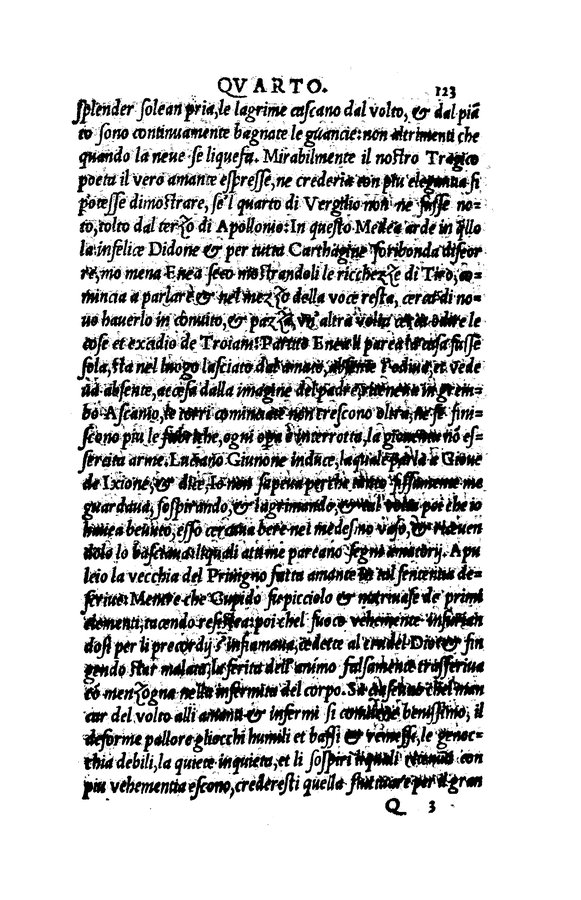 QVARTO. 123
ſplender ſolean pria, le lagrime caſcano dal volto, & dal piã
to ſono continuamente bagnate le guancie: non altrimenti che
quando la neue ſe liquefa. Mirabilmente il noſtro Tragico
poeta il vero amante eſpreſſe, ne crederia con piu elegantia ſi
poteſſe dimoſtrare, ſe'l quarto di Vergilio non ne fuſſe no=
to, tolto dal terzo di Apollonio: In queſto Medea arde in q̃llo
la infelice Didone & per tutta Carthagine foribonda diſcor
re, mo mena Enea ſeco moſtrandoli le ricchezze di Tiro, co=
mincia a parlare & nel mezzo della voce reſta, cerca di no=
uo hauerlo in conuito, & pazza vn' altra volta cerca odire le
coſe et excidio de Troiani: Partito Enea li parea la caſa fuſſe
ſola, ſta nel luogo laſciato dal amato, abſente l'odiua, et vede
ua abſente, acceſa dalla imagine del padre, ritenea in grem=
bo Aſcanio, le torri cominciate non creſcono oltra, ne ſe fini=
ſcono piu le fabriche, ogni opa è interrotta, la giouentu nõ eſ=
ſercita arme. Luciano Giunone induce, laquale parla a Gioue
de Ixione, & dice, Io non ſapeua perche tutto fiſſamente me
guardaua, ſoſpirando, & lagrimando, & tal volta poi che io
hauea beuuto, eſſo cercaua bere nel medeſmo vaſo, &
lo baſciaua: liquali atti me pareano ſegni amatorij. Apu
leio la vecchia del Priuigno fatta amante in tal ſententia de=
ſcriue: Mentre che Cupido fu picciolo & de primi
elementi, tacendo reſiſtea: poi chel fuoco vehemente
doſi per li precordij s'infiamaua, cedette al crudel Dio: & fin
gendo ſtar malata, la ferita dell' animo falſamente trasferiua
cõ menzogna nella infermita del corpo. Sa ciaſcuno chel man
car del volto alli amanti & infermi ſi conuiene beniſſimo, il
deforme pallore gliocchi humili et baſſi & remeſſi, le genoc=
chia debili, la quiete inquieta, et li ſoſpiri liquali con
piu vehementia eſcono, crederesti quella per il gran
Q 3